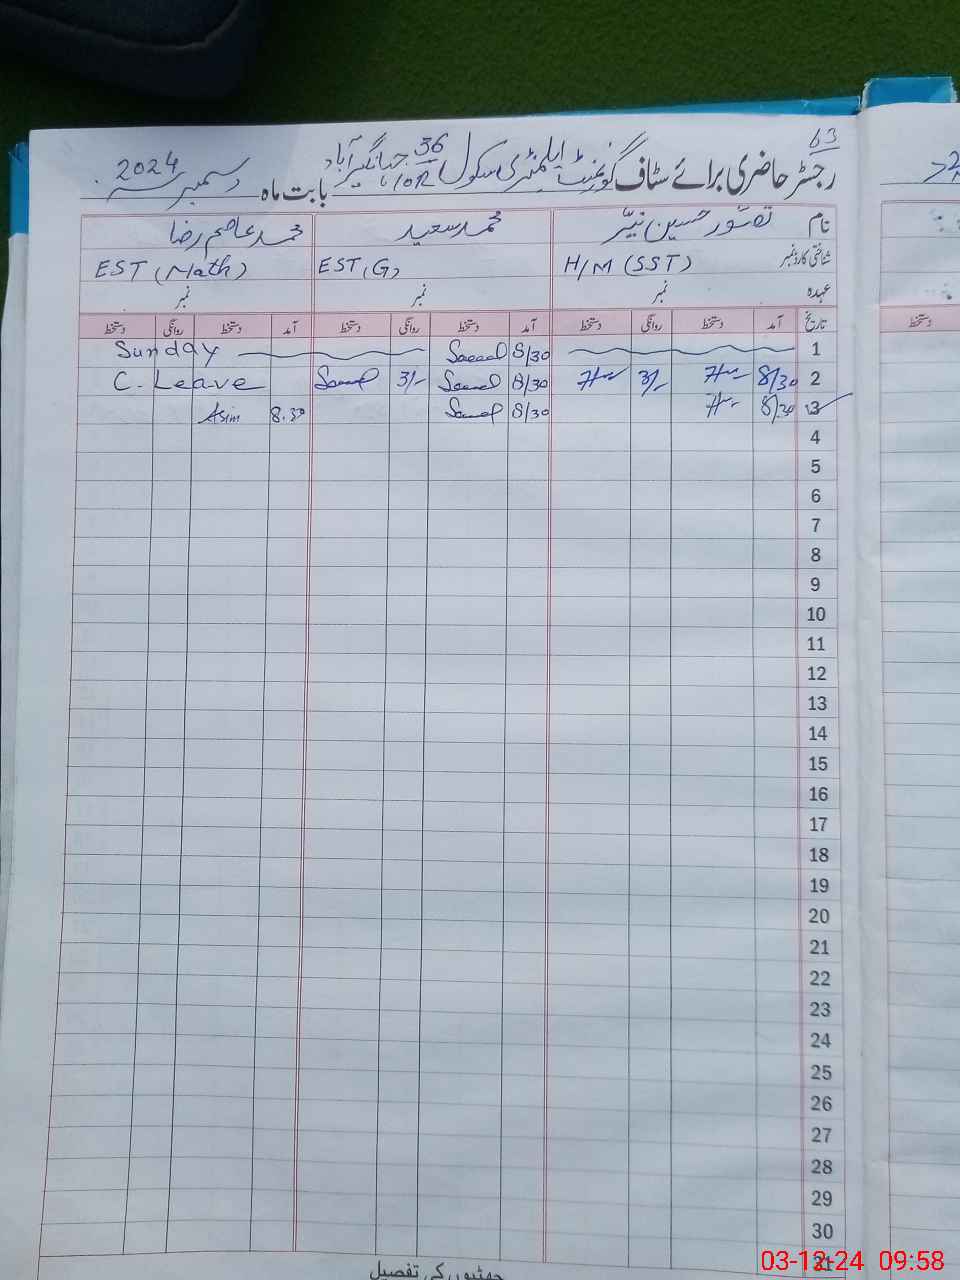 63
رجسٹر حاضری برائے سٹاف گورنمنٹ ایلیمنٹری سکول 36/10R جہانگیر آباد بابت ماہ دسمبر 2024
نام تصور حسین نیّر محمد سعید محمد عاصم رضا
شناختی کارڈ نمبر H/M (SST) EST (G) EST (Math)
عہدہ نمبر نمبر نمبر
تاریخ آمد دستخط روانگی دستخط آمد دستخط روانگی دستخط آمد دستخط روانگی دستخط
دستخط
1 8/30 Saeed Sunday
2 8/30 3/- 8/30 Saeed 3/- Saeed C. Leave
3 8/30 8/30 Saeed 8.30 Asim
4
5
6
7
8
9
10
11
12
13
14
15
16
17
18
19
20
21
22
23
24
25
26
27
28
29
30
31
چھٹیوں کی تفصیل
03-12-24 09:58